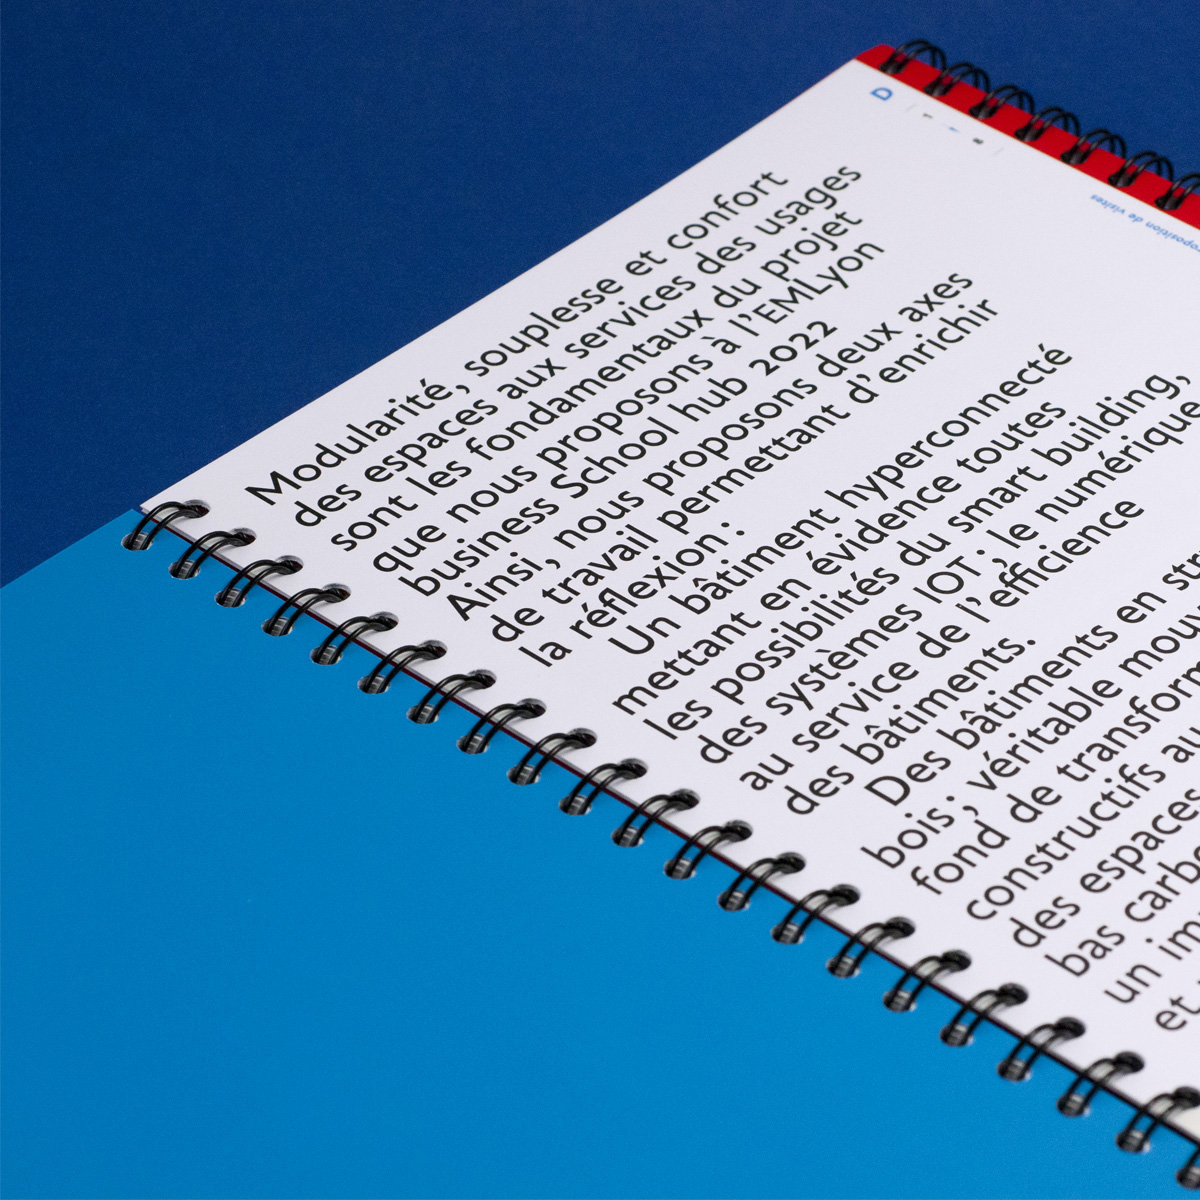 Modularité, souplesse et confort
des espaces aux services des usages
sont les fondamentaux du projet
que nous proposons à l'EMLyon
business School hub 2022
Ainsi, nous proposons deux axes
de travail permettant d'enrichir
la réflexion :
Un bâtiment hyperconnecté
mettant en évidence toutes
les possibilités du smart building,
des systèmes IOT ; le numérique
au service de l'efficience
des bâtiments.
Des bâtiments en
bois ; véritable
fond de
constructifs
des espaces
bas
un
et
D
de visites